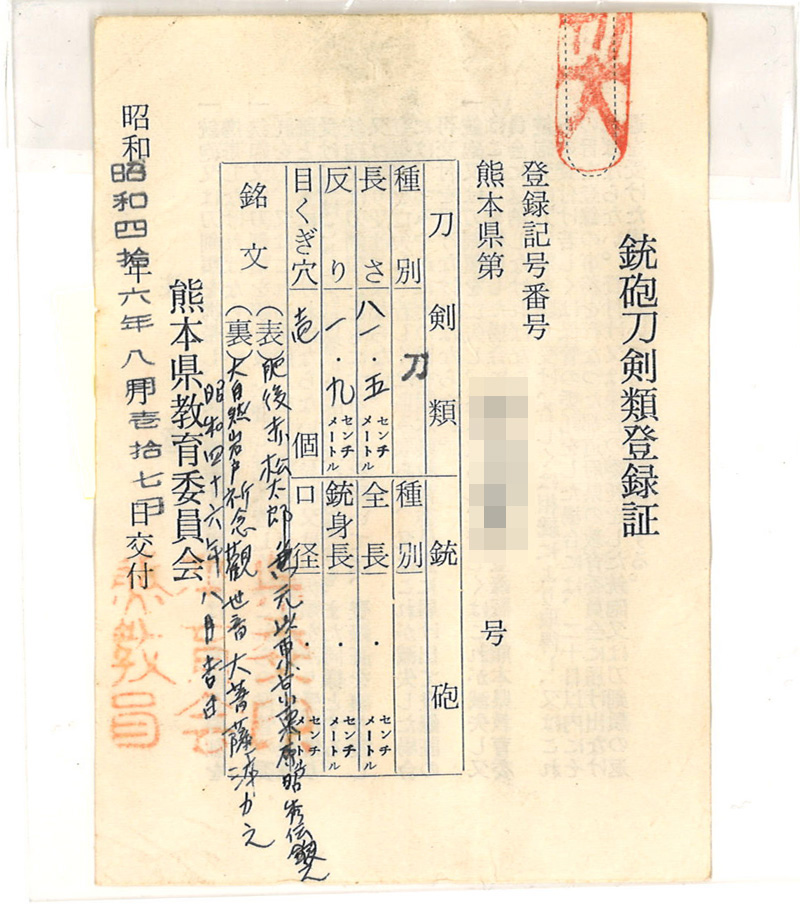 銃砲刀剣類登録証
登録記号番号
熊本県第 号
刀剣類
銃砲
種別 刀
種別
長さ 八一・五 センチメートル
全長 ・ センチメートル
反り 一・九 センチメートル
銃身長 ・ センチメートル
目くぎ穴 壱 個
口径 ・ センチメートル
銘文
(表)肥後赤松太郎兼元以
(裏)大自然岩戸祈念觀世音大菩薩
昭和四十六年八月吉日
熊本県教育委員会
昭和 昭和四拾六年八月壱拾七日交付